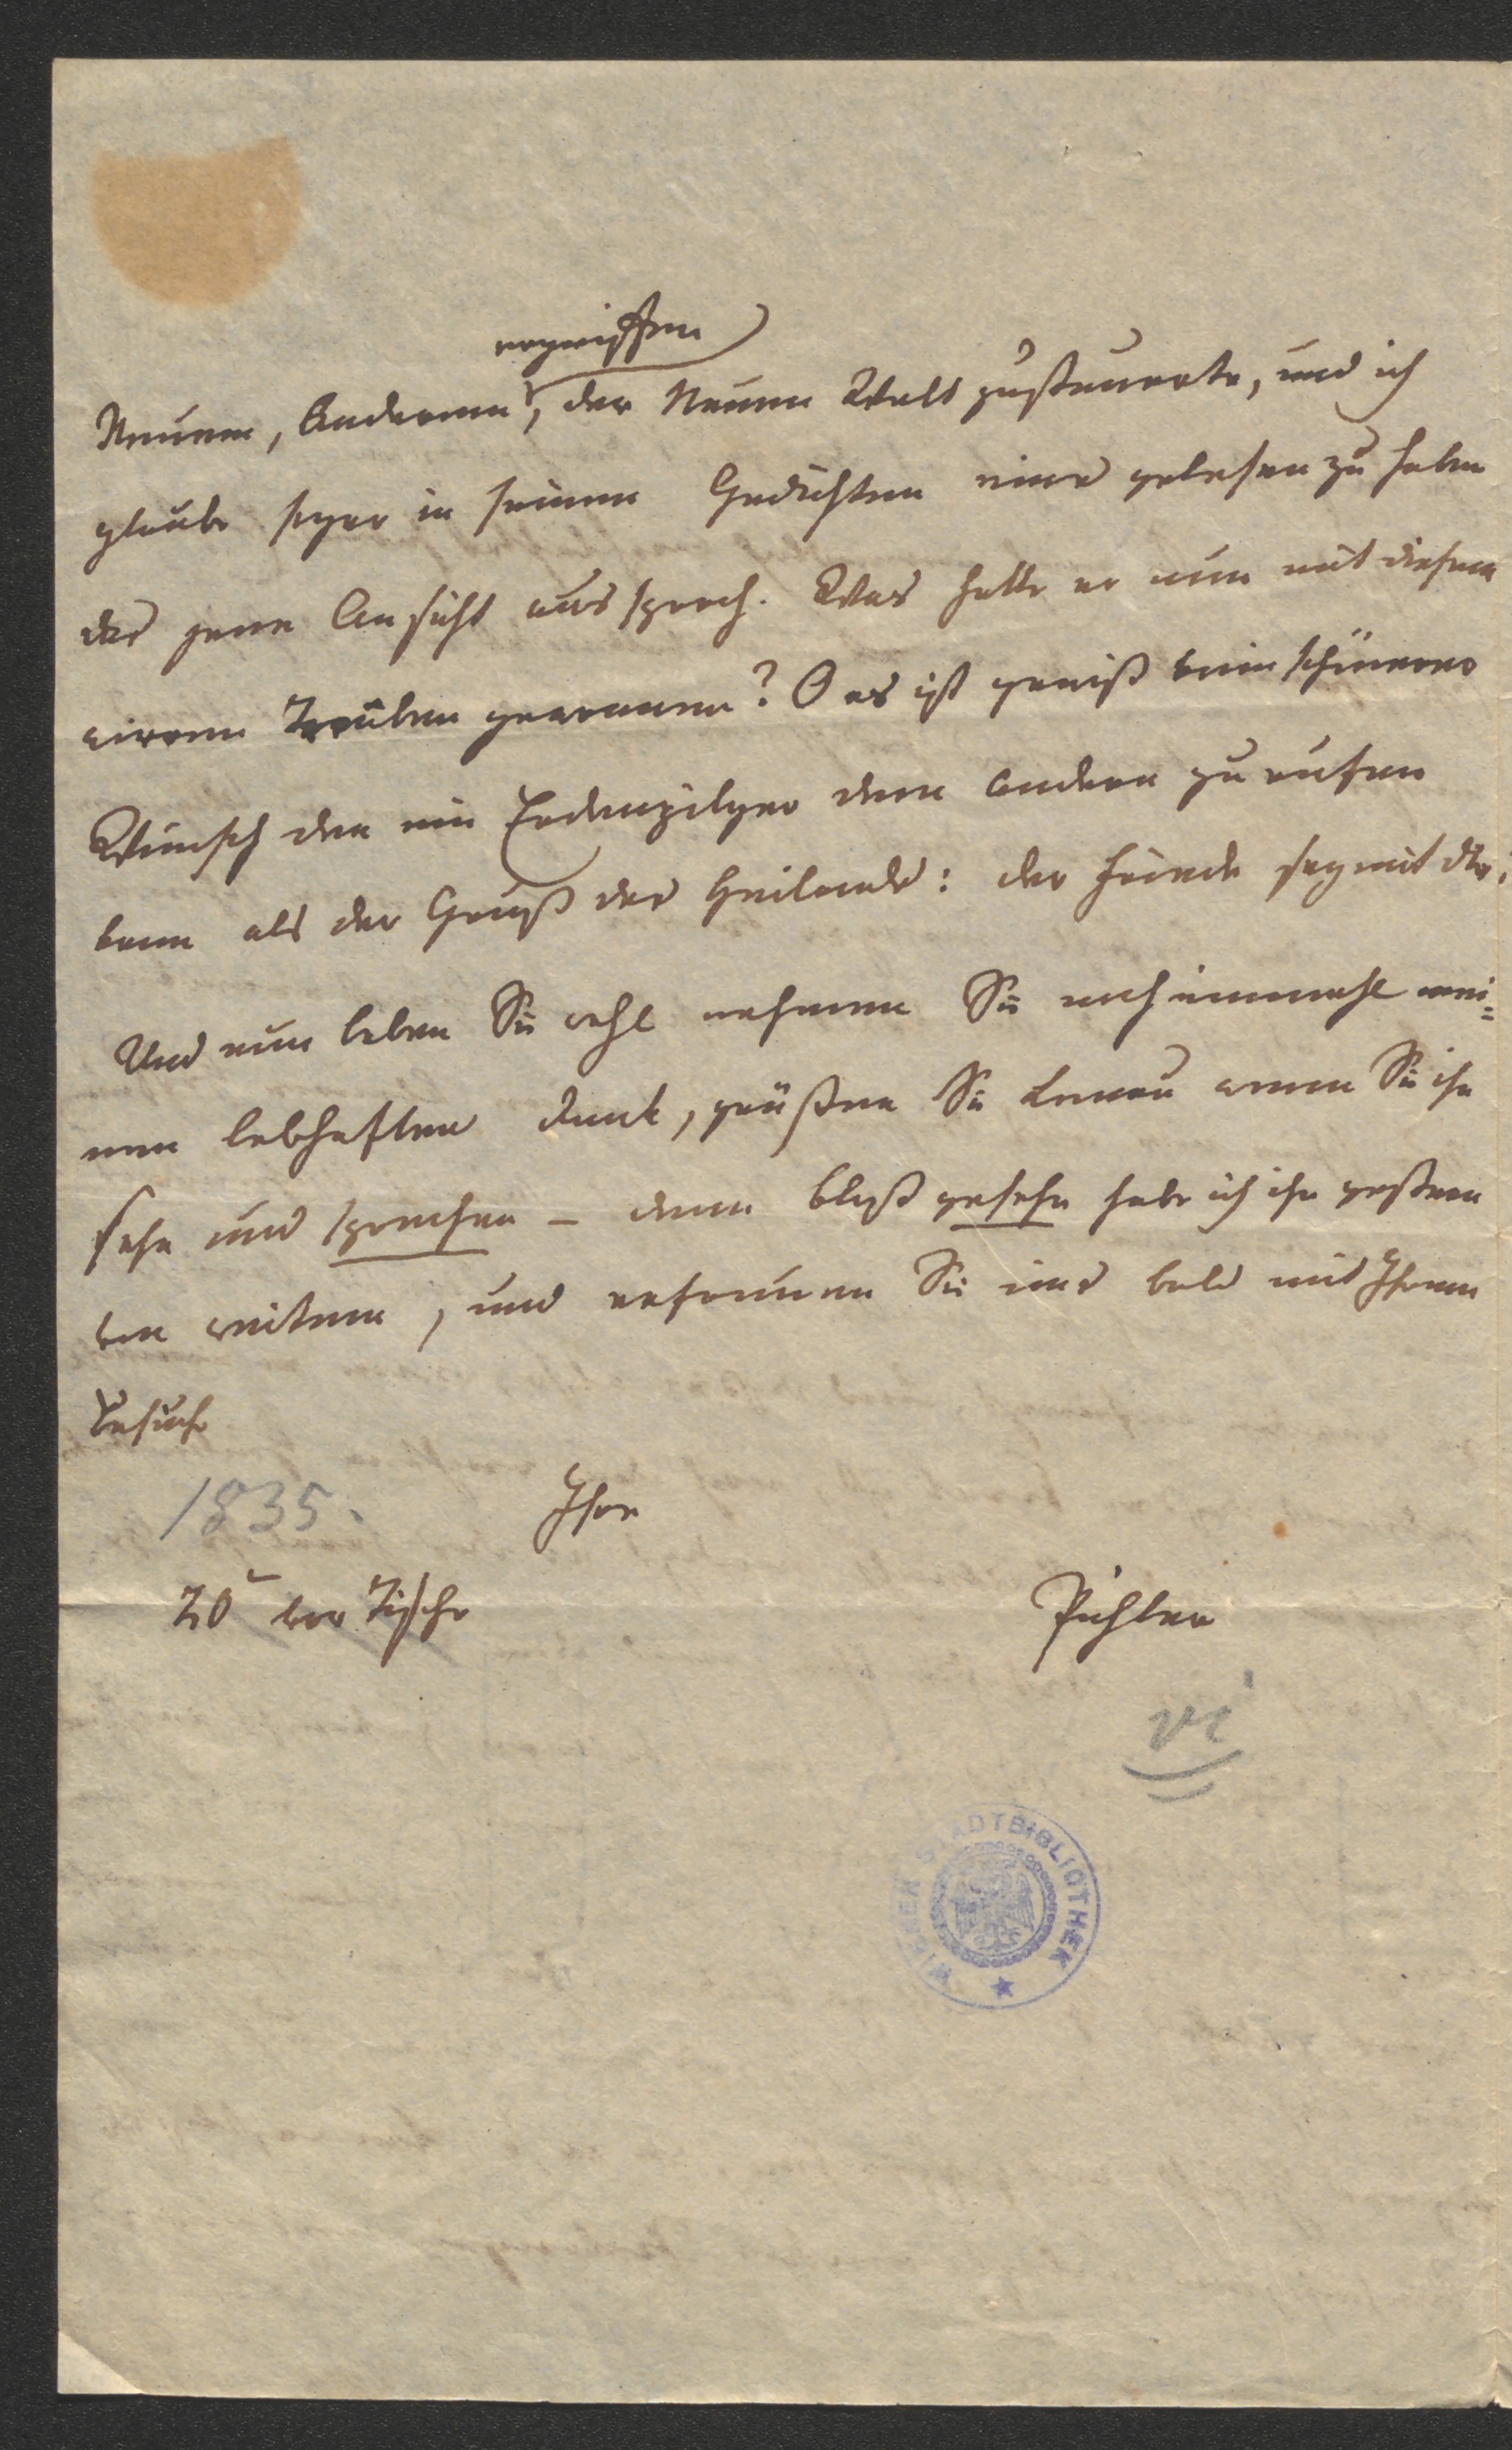 ergriffen
Neuem, Anderem, der Neuen Welt zusteuerte, und ich
glaube sogar in seinen Gedichten eins gelesen zu haben
das jene Ansicht aussprach. Was hatte er nun mit diesem
wirren Treiben gewonnen? O es ist gewiß kein schönerer
Wunsch den ein Erdenpilger dem andern zu rufen
kann als der Gruß des Heilands: der Friede sey mit dir!
Und nun leben Sie wohl nehmen Sie noch einmahl mei=
nen lebhaften Dank, grüßen Sie Lenau wenn Sie ihn
sehn und sprechen – denn bloß gesehn habe ich ihn gestern
von weitem, und erfreuen Sie uns bald mit Ihrem
Besuch
1835.
Ihre
20 vor Tische
Pichler
vi
WIENER STADTBIBLIOTHEK